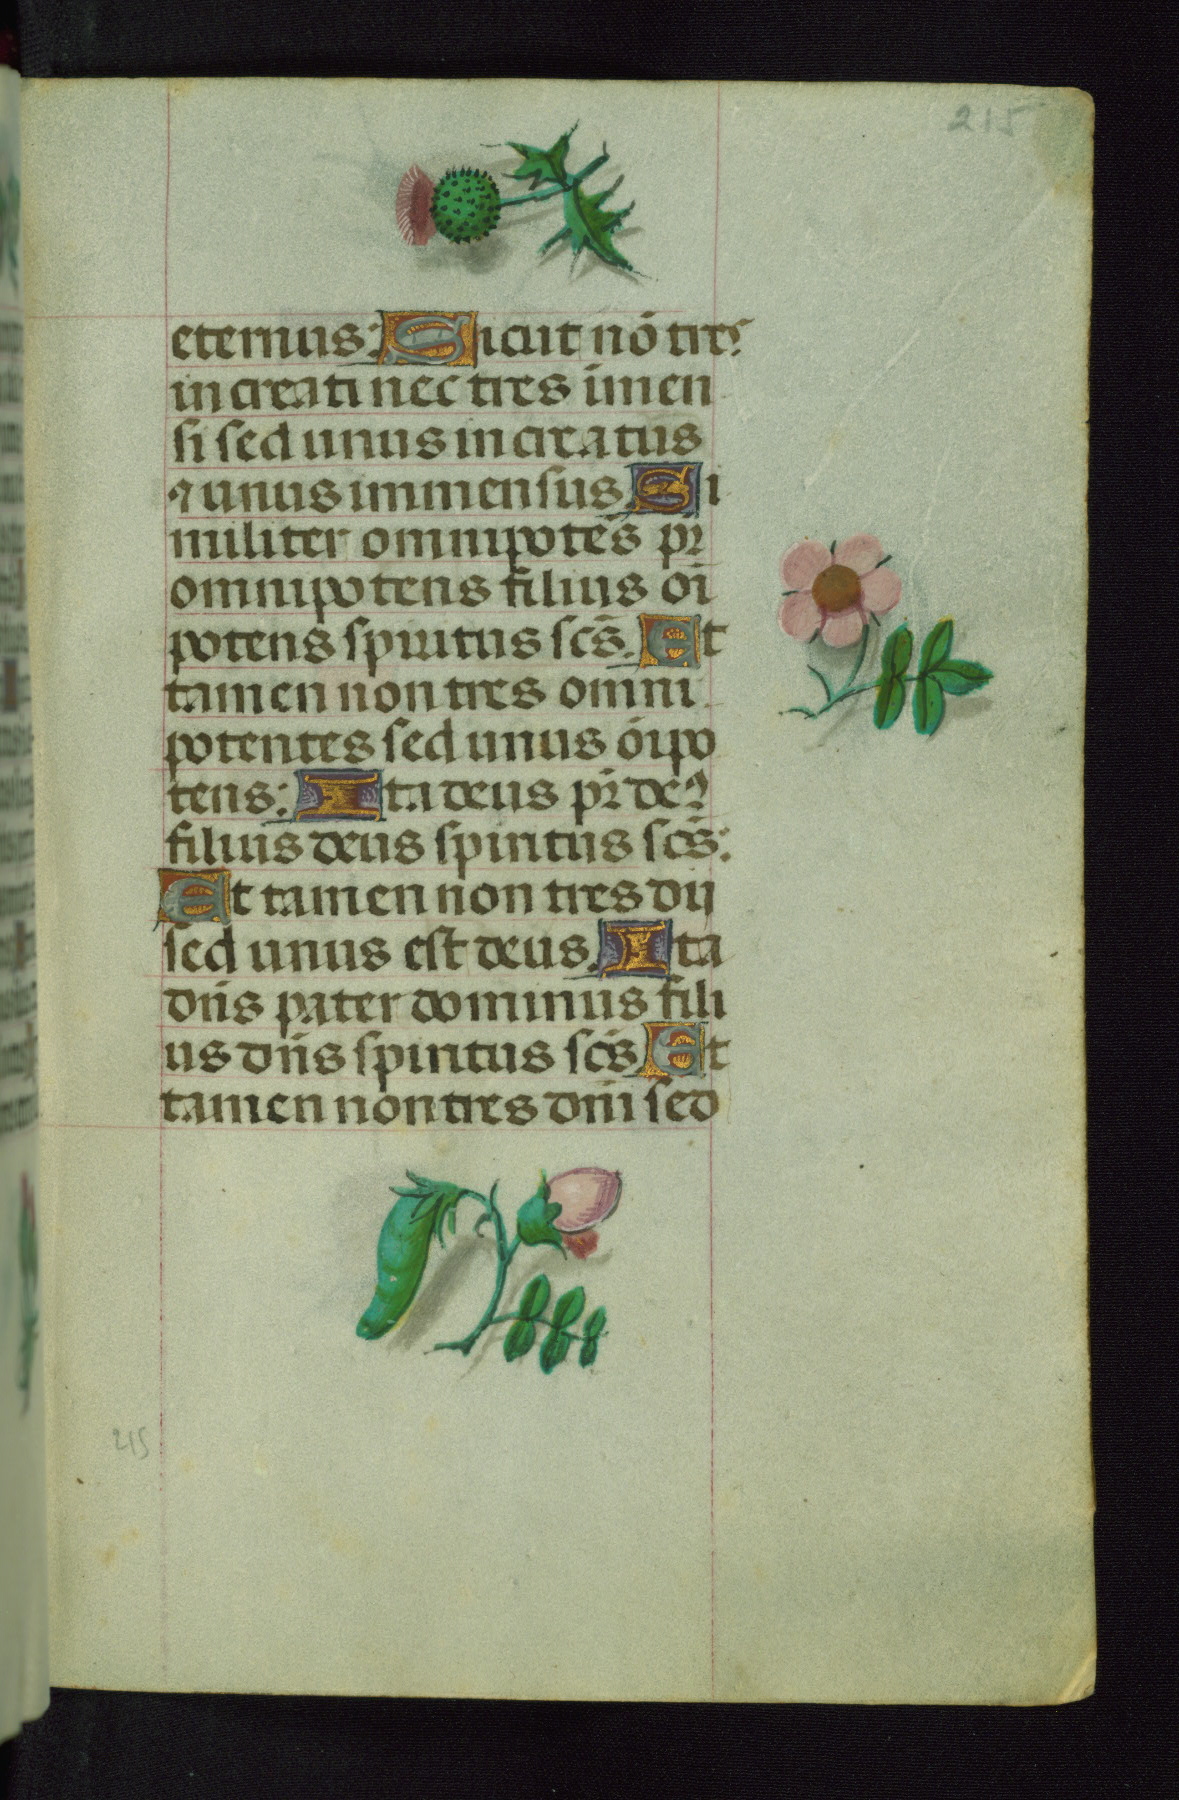 215
eternus: Sicut nō tres
increati nec tres īmen
si sed unus increatus
⁊ unus immensus. Si
militer omnipotēs pr̄
omnipotens filius oī
potens spiritus scs̄. Et
tamen non tres omni
potentes sed unus oīpo
tens: Ita deus pr̄ de⁹
filius deus spiritus scs̄:
Et tamen non tres dii
sed unus est deus. Ita
dn̄s pater dominus fili
us dn̄s spiritus scs̄ Et
tamen non tres dn̄i sed
215